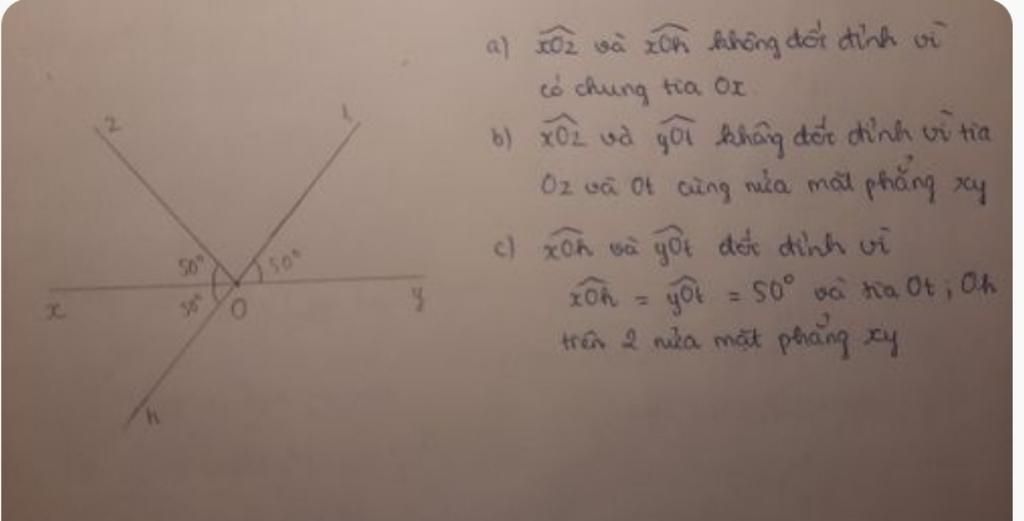 z
t
50°
50°
50°
x
O
y
h
a) xOz và xOh không đối đỉnh vì
có chung tia Ox
b) xOz và yOt không đối đỉnh vì tia
Oz và Ot cùng nửa mặt phẳng xy
c) xOh và yOt đối đỉnh vì
xOh = yOt = 50° và tia Ot; Oh
trên 2 nửa mặt phẳng xy